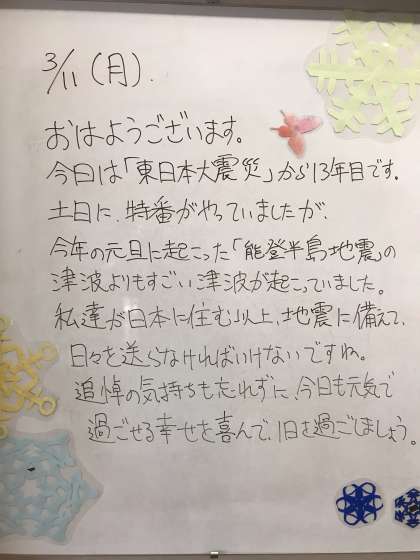 3/11(月).
おはようございます。
今日は「東日本大震災」から13年目です。
土日に、特番がやっていましたが、
今年の元旦に起こった「能登半島地震」の
津波よりもすごい津波が起こっていました。
私達が日本に住む以上、地震に備えて、
日々を送らなければいけないですね。
追悼の気持ちも忘れずに、今日も元気で
過ごせる幸せを喜んで、1日を過ごしましょう。